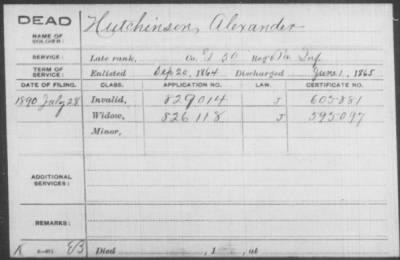 DEAD
Hutchinson, Alexander
NAME OF SOLDIER:
SERVICE: Late rank, Co. 50 Reg't Pa Inf
TERM OF SERVICE: Enlisted Sep 20, 1864 Discharged June 1, 1865
DATE OF FILING. CLASS. APPLICATION NO. LAW. CERTIFICATE NO.
1890 July 28 Invalid, 829014 J 605881
Widow, 826118 J 595097
Minor,
ADDITIONAL SERVICES:
REMARKS:
Died , 1 , at